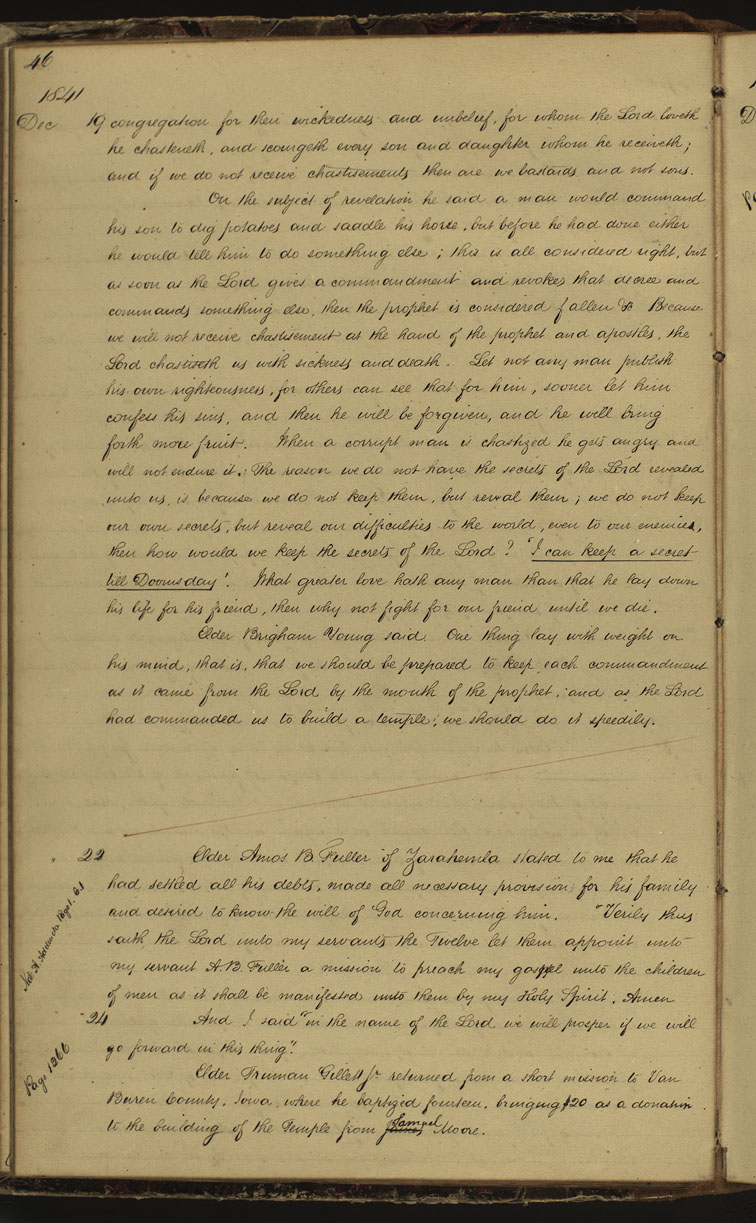 46
1841
Dec 19 congregation for their wickedness and unbelief, for whom the Lord loveth
he chasteneth, and scourgeth every son and daughter whom he receiveth;
and if we do not receive chastisements then are we bastards and not sons.
On the subject of revelation he said a man would command
his son to dig potatoes and saddle his horse, but before he had done either
he would tell him to do something else; this is all considered right, but
as soon as the Lord gives a commandment and revokes that decree and
commands something else, then the prophet is considered fallen &c Because
we will not receive chastisement at the hand of the prophet and apostles, the
Lord chastiseth us with sickness and death. Let not any man publish
his own righteousness, for others can see that for him, sooner let him
confess his sins, and then he will be forgiven, and he will bring
forth more fruit. When a corrupt man is chastized he gets angry and
will not endure it. The reason we do not have the secrets of the Lord revealed
unto us, is because we do not keep them, but reveal them; we do not keep
our own secrets, but reveal our difficulties to the world, even to our enemies,
then how would we keep the secrets of the Lord? "I can keep a secret
till Doomsday". What greater love hath any man than that he lay down
his life for his friend, then why not fight for our friend until we die.
Elder Brigham Young said. One thing lay with weight on
his mind, that is, that we should be prepared to keep each commandment
as it came from the Lord by the mouth of the prophet; and as the Lord
had commanded us to build a temple, we should do it speedily.
" 22 Elder Amos B. Fuller of Zarahemla stated to me that he
had settled all his debts, made all necessary provision for his family
and desired to know the will of God concerning him. "Verily thus
saith the Lord unto my servants the Twelve let them appoint unto
my servant A. B. Fuller a mission to preach my gospel unto the children
of men as it shall be manifested unto them by my Holy Spirit. Amen
" 24 And I said "in the name of the Lord we will prosper if we will
go forward in this thing".
Page 1266
Elder Truman Gillett Jr returned from a short mission to Van
Buren County, Iowa, where he baptized fourteen, bringing $20 as a donation
to the building of the Temple from Samuel Moore.